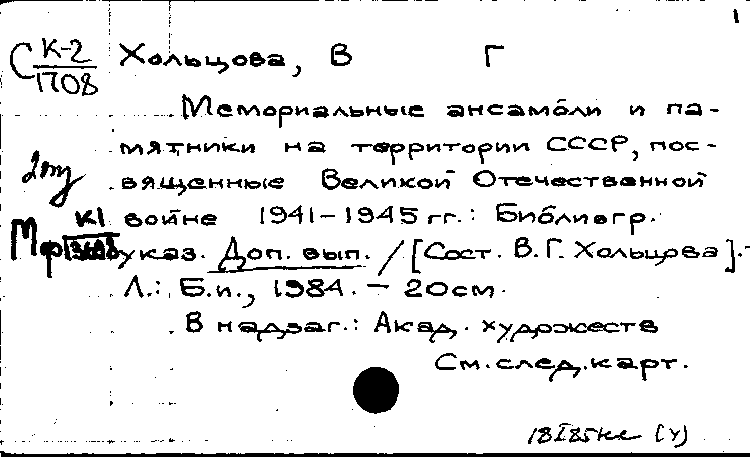 1
С К-2/1708 Хольцова, В Г
Мемориальные ансамбли и па-
мятники на территории СССР, пос-
вященные Великой Отечественной
войне 1941-1945 гг.: Библиогр.
указ. Доп. вып. / [Сост. В.Г. Хольцова]. -
Л.: Б.и., 1984. - 20см.
В надзаг.: Акад. художеств
См. след. карт.
2эт
К1
18I85
(У)